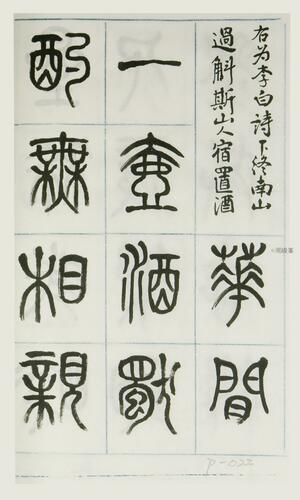 右为李白詩下终南山
過斛斯山人宿置酒
華間
一壺酒獨
酌無相親
P-022